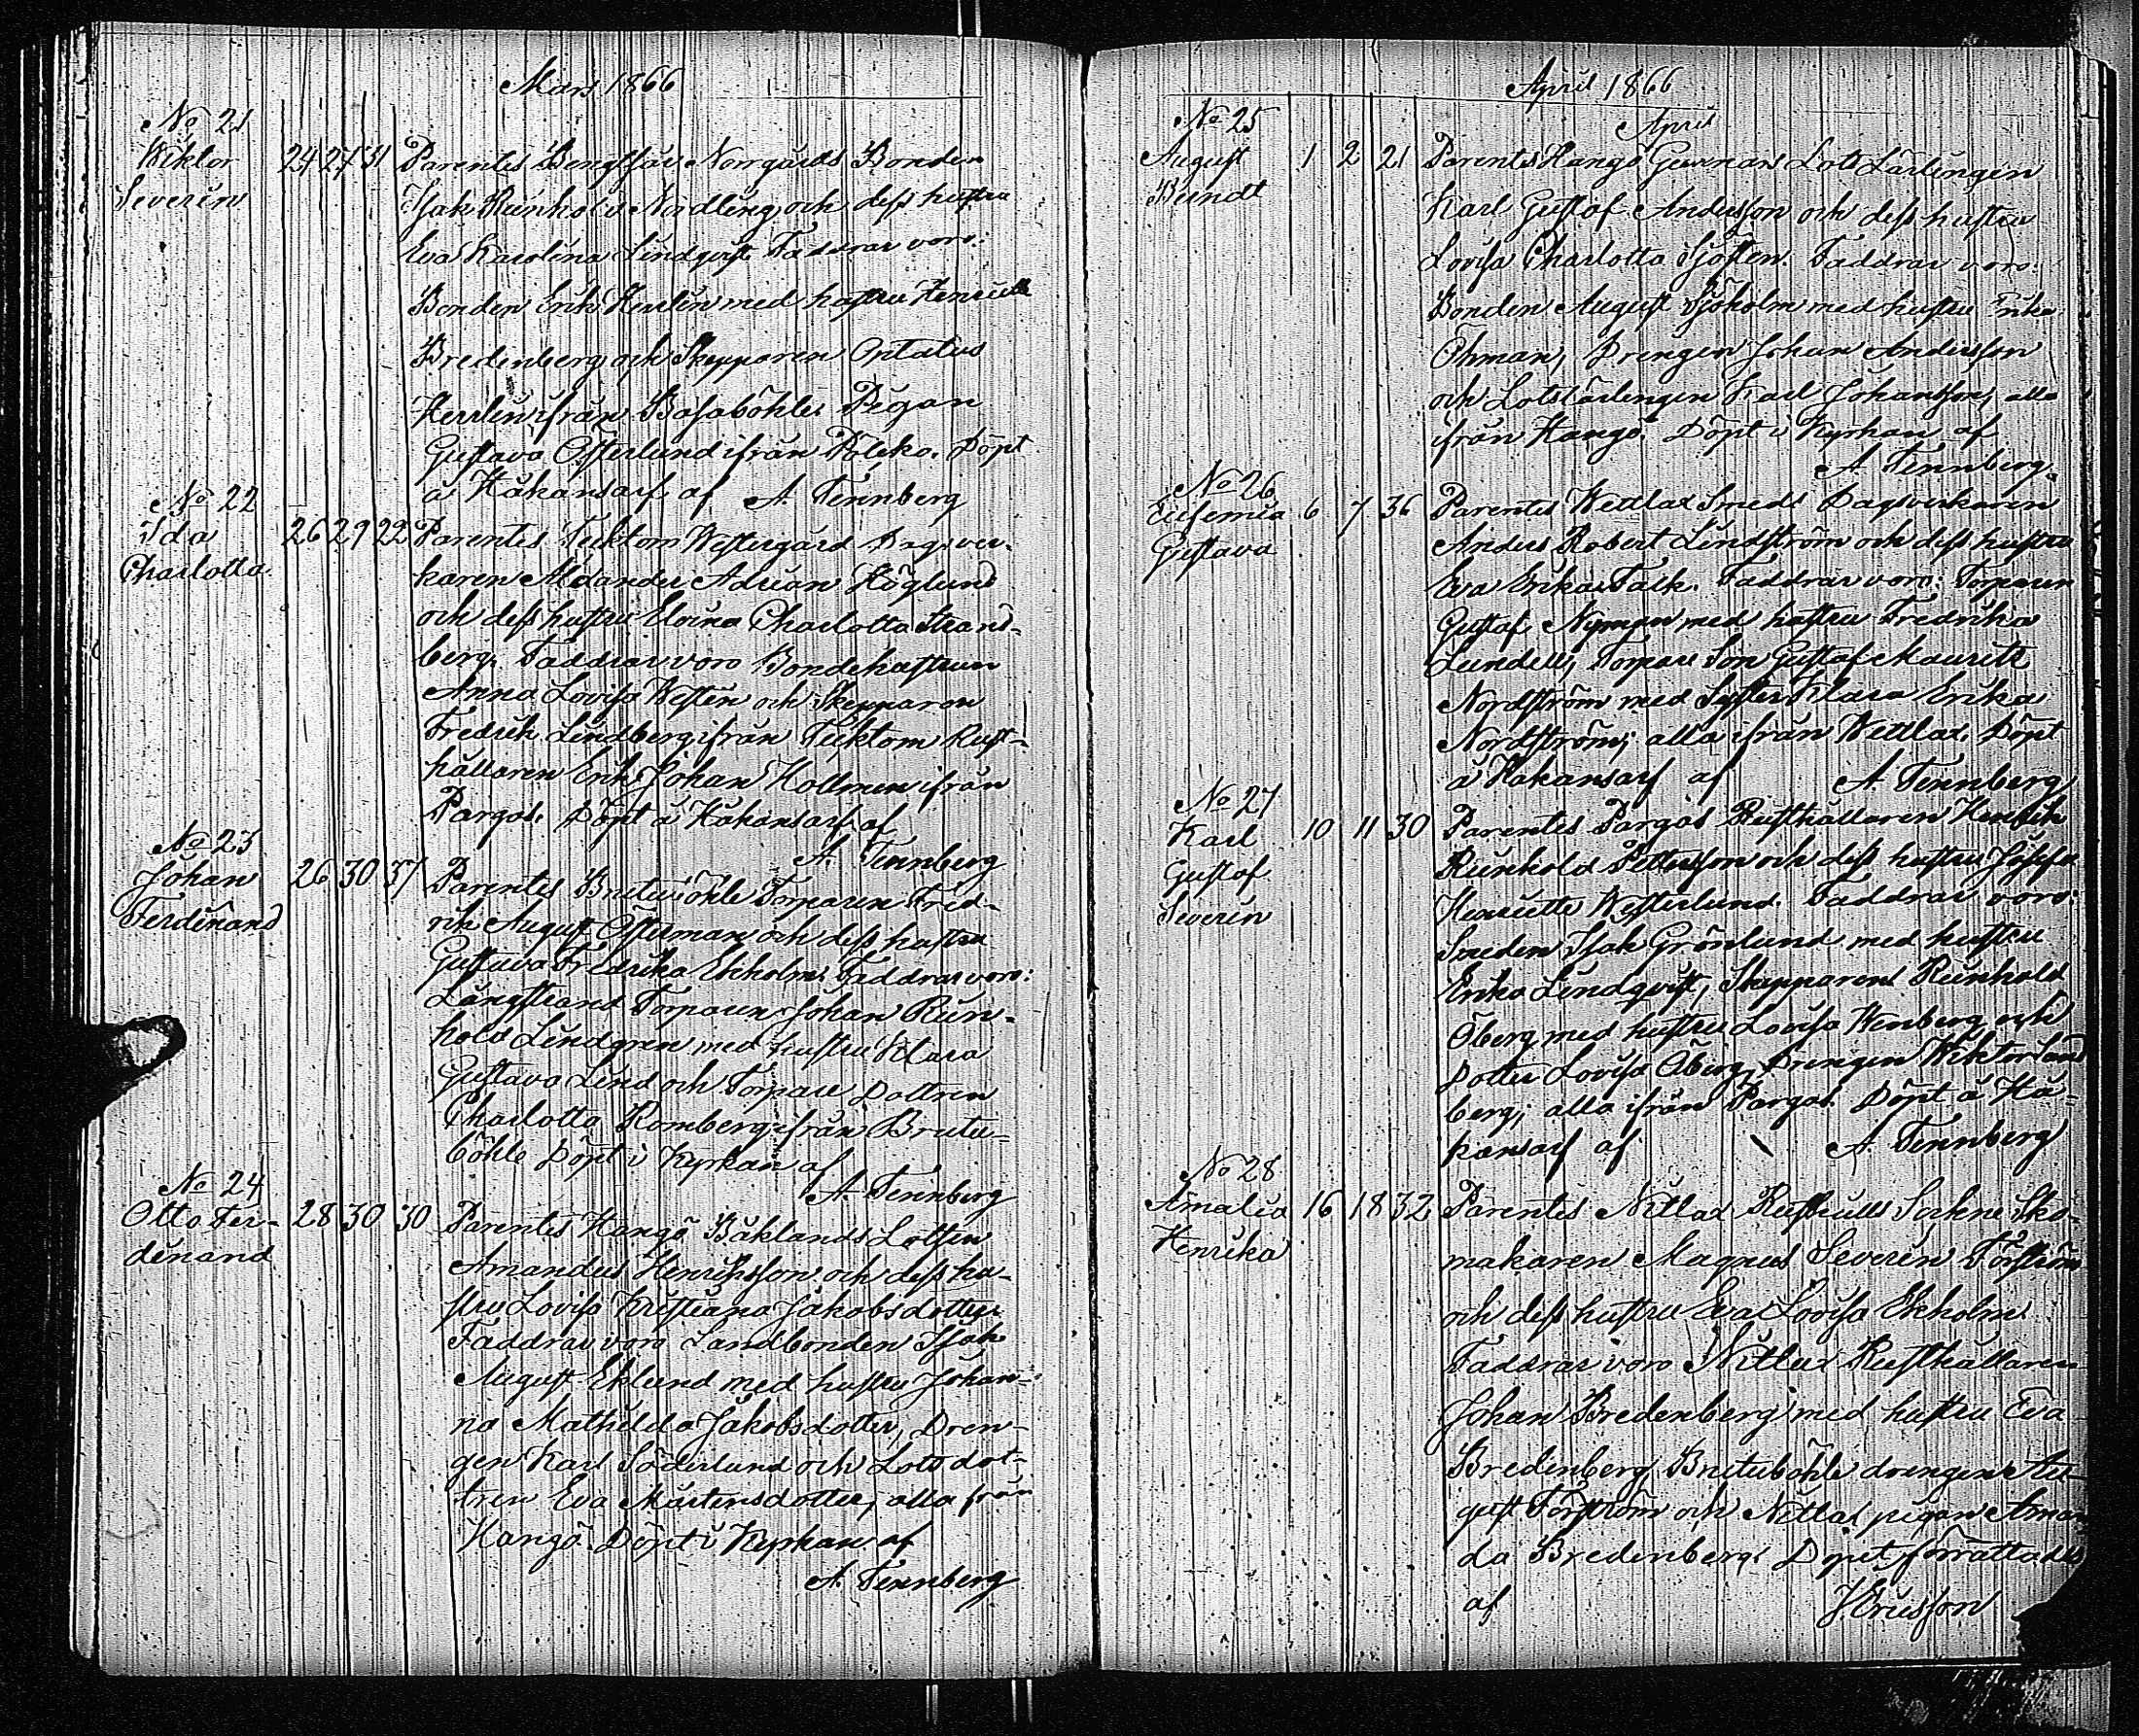 Mars 1866
No 21
Wiktor 24 27 31 Parentes Bengtsår Norrgårds Bonden
Severin Isak Reinhold Nordling och dess hustru
Eva Karolina Lindqvist. Faddrar voro:
Bonden Erik Herrlin med hustru Henriette
Bredenberg och Skepparen Optatus
Herrlin ifrån Basaböhle, Pigan
Gustava Österlund ifrån Båleko. Döpt
å Håkansarf af A. Tennberg
No 22
Ida 26 29 22 Parentes Tecktom Westergård Dagsver-
Charlotta karen Alexander Adrian Höglund
och dess hustru Elvina Charlotta Strand-
berg. Faddrar voro Bondehustrun
Anna Lovisa Westen och Skepparen
Fredrik Lindberg ifrån Tecktom Rust-
hållaren Erik Johan Hollmen ifrån
Pargas. Döpt å Håkansarf af
A. Tennberg
No 23
Johan 26 30 37 Parentes Bruteböhle Torparen Fred-
Ferdinand rik August Österman och dess hustru
Gustava Fredrika Ekholm. Faddrar voro:
Långstrand Torparen Johan Rein-
hold Lindgren med hustru Klara
Gustava Lind och Torpare Dottren
Charlotta Romberg ifrån Brute-
böhle Döpt i Kyrkan af
A. Tennberg
No 24
Otto Fer- 28 30 30 Parentes Hangö Båklands Lotsen
dinand Amandus Henriksson och dess hu-
stru Lovisa Kristiana Jakobsdotter.
Faddrar voro Landbonden Isak
August Eklund med hustru Johan-
na Mathilda Jakobsdotter, Dren-
gen Karl Söderlund och Lots dot-
tren Eva Mårtensdotter, alla från
Hangö. Döpt i Kyrkan af
A. Tennberg
April 1866
April
No 25
August 1 2 21 Parentes Hangö Gunnars Lots Lärlingen
Berndt Karl Gustaf Andersson och dess hustru
Lovisa Charlotta Sjösten. Faddrar voro:
Bonden August Sjöholm med hustru Erika
Öhman, Drengen Johan Andersson
och Lotslärlingen Karl Johansson, alla
ifrån Hangö. Döpt i Kyrkan af
A. Tennberg.
No 26
Eufemia 6 7 36 Parentes Wettlax Smeds Dagsverkaren
Gustava Anders Robert Lindström och dess hustru
Eva Erika Falk. Faddrar voro: Torparen
Gustaf Nyman med hustru Fredrika
Lundell, Torpare Son Gustaf Mauritz
Nordström med Syster Klara Erika
Nordström; alla ifrån Wettlax. Döpt
å Håkansarf af A. Tennberg
No 27
Karl 10 11 30 Parentes Pargas Rusthållaren Henrik
Gustaf Reinhold Pettersson och dess hustru Josefa
Severin Henriette Westerlund. Faddrar voro:
Smeden Isak Grönlund med hustru
Erika Lindqvist, Skepparen Reinhold
Öberg med hustru Lovisa Wenberg och
Dotter Lovisa Öberg, Drengen Wiktor Sand
berg; alla ifrån Pargas. Döpt å Hå-
kansarf af A. Tennberg
No 28
Amalia 16 18 32 Parentes Nitlax Rusthålls Sockne Sko-
Henrika makaren Magnus Severin Förström
och dess hustru Eva Lovisa Ekholm.
Faddrar voro Nitlax Rusthållaren
Johan Bredenberg med hustru Eva
Bredenberg, Bruteböhle drengen Au-
gust Förström och Nitlax pigan Aman
da Bredenberg. Dopet förrättades
af J. Ericsson